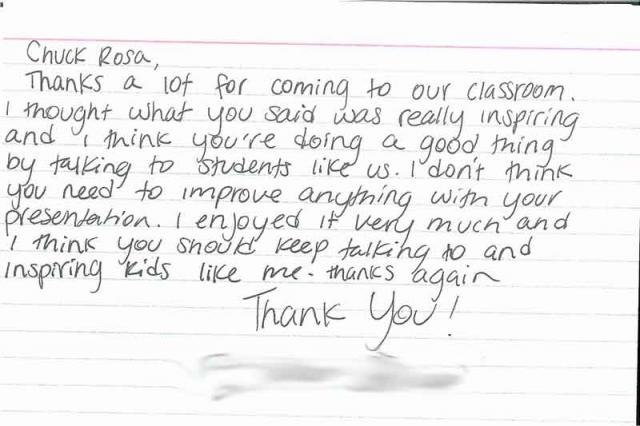 Chuck Rosa,
Thanks a lot for coming to our classroom.
I thought what you said was really inspiring
and i think you're doing a good thing
by talking to students like us. I don't think
you need to improve anything with your
presentation. I enjoyed it very much and
i think you should keep talking to and
inspiring kids like me. thanks again
Thank You!